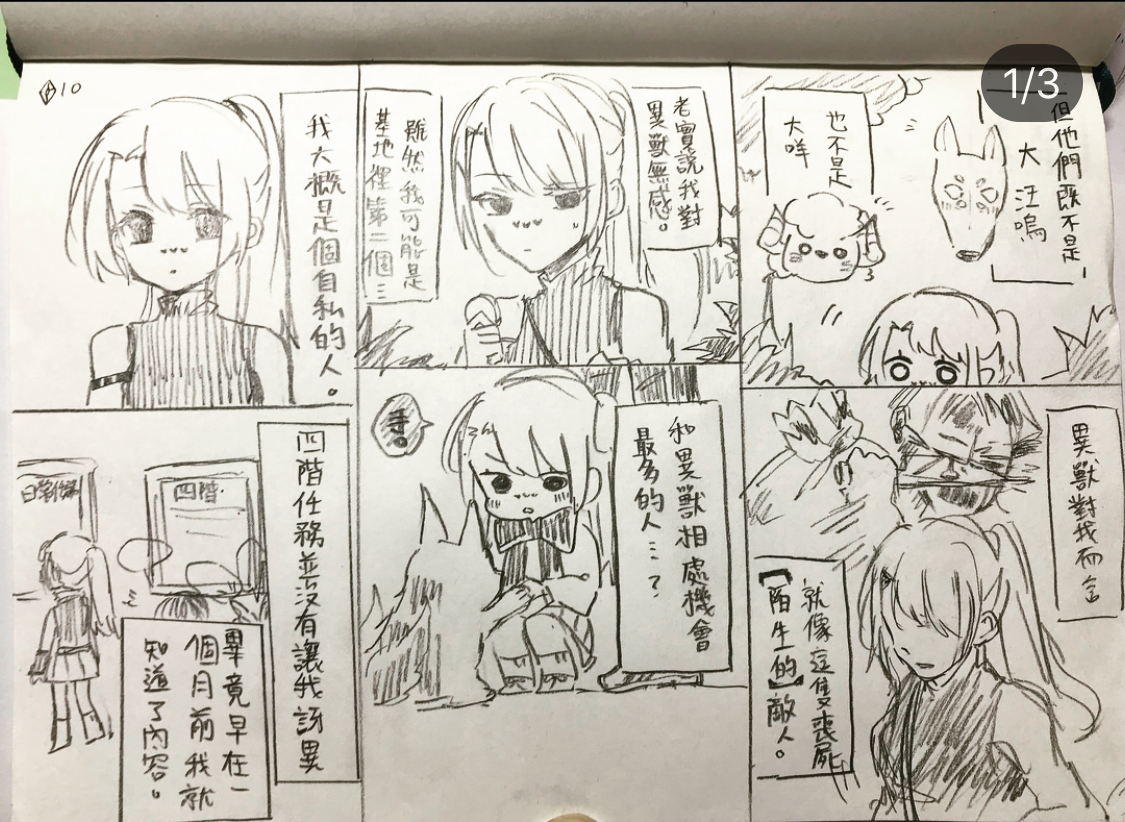 10
我大概是個自私的人。
四階任務並沒有讓我訝異
四階
畢竟早在一
個月前我就
知道了內容。
老實說我對
異獸無感。
雖然我可能是
基地裡第二個…
和異獸相處機會
最多的人…?
但他們既不是
大汪嗚
也不是
大咩
異獸對我而言
就像這隻喪屍
【陌生的】敵人。
1/3